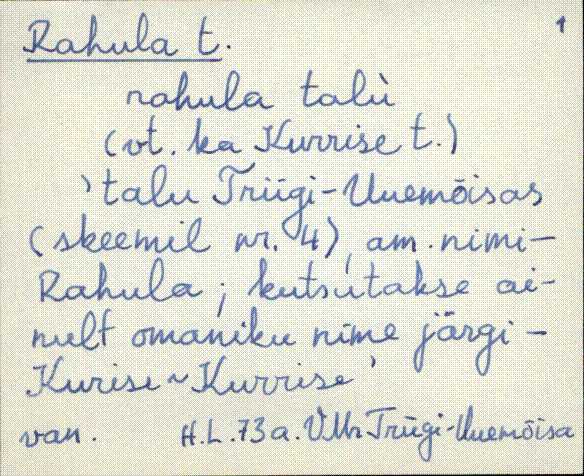 1
Rahula t.
rahula talù
(vt. ka Kurrise t.)
'talu Triigi-Uuemõisas
(skeemil nr. 4), am. nimi-
Rahula; kutsutakse ai-
nult omaniku nime järgi -
Kurise ~ Kurrise'
van. H.L. 73 a. VMr Triigi-Uuemõisa